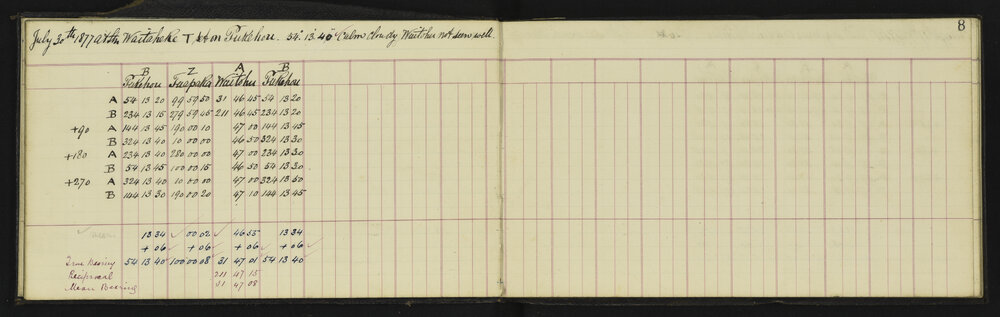 8
July 30th 1877 at Stn Waitoheke T, set on Pukehou. 54° 13' 40" Calm cloudy Waitohu not seen well
B Z A B
Pukehou Taapaka Waitohu Pukehou
A 54 13 20 99 59 50 31 46 45 54 13 20
B 234 13 15 279 59 45 211 46 45 234 13 20
+90 A 144 13 45 190 00 10 47 00 144 13 45
B 324 13 40 10 00 00 46 50 324 13 30
+180 A 234 13 40 280 00 00 47 00 234 13 30
B 54 13 45 100 00 15 46 50 54 13 30
+270 A 324 13 40 10 00 00 47 00 324 13 50
B 144 13 30 190 00 20 47 10 144 13 45
✓ mean 13 34 ✓ 00 02 ✓ 46 55 13 34
+ 06 ✓ + 06 ✓ + 06 ✓ + 06 ✓
True Bearing 54 13 40 100 00 08 31 47 01 54 13 40
Reciprocal 211 47 15
Mean Bearing 31 47 08